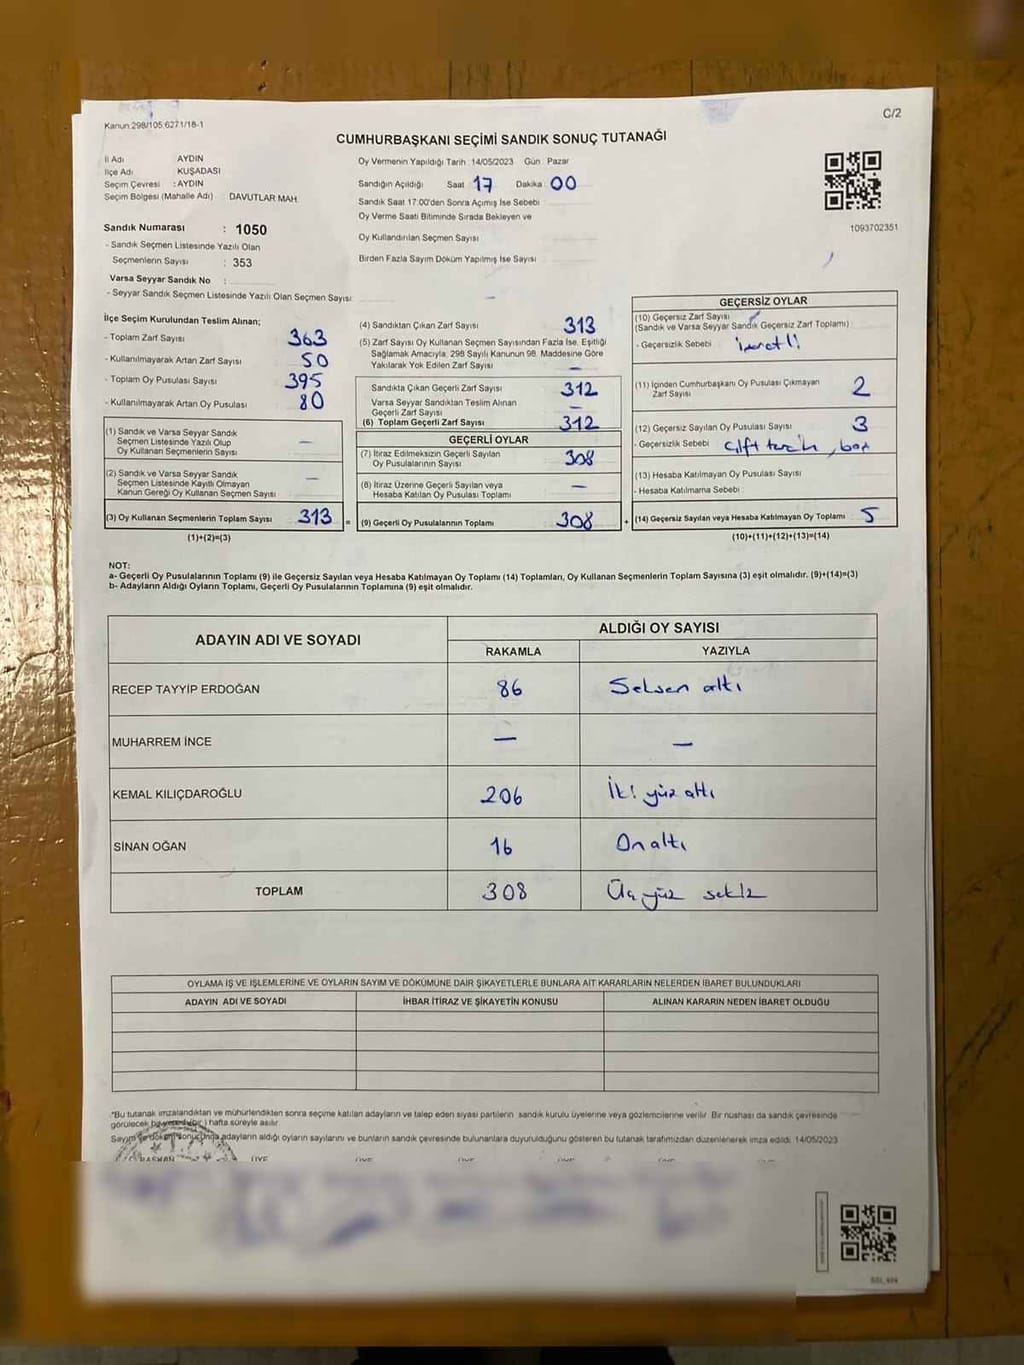 Kanun 298/105 6271/18-1
C/2
CUMHURBAŞKANI SEÇİMİ SANDIK SONUÇ TUTANAĞI
İl Adı AYDIN
İlçe Adı KUŞADASI
Seçim Çevresi : AYDIN
Seçim Bölgesi (Mahalle Adı) DAVUTLAR MAH.
Sandık Numarası : 1050
- Sandık Seçmen Listesinde Yazılı Olan
Seçmenlerin Sayısı : 353
Varsa Seyyar Sandık No :
- Seyyar Sandık Seçmen Listesinde Yazılı Olan Seçmen Sayısı: –
Oy Vermenin Yapıldığı Tarih 14/05/2023 Gün Pazar
Sandığın Açıldığı Saat 17 Dakika 00
Sandık Saat 17:00'den Sonra Açımış İse Sebebi
Oy Verme Saati Bitiminde Sırada Bekleyen ve
Oy Kullandırılan Seçmen Sayısı
Birden Fazla Sayım Döküm Yapılmış İse Sayısı
1093702351
İlçe Seçim Kurulundan Teslim Alınan;
- Toplam Zarf Sayısı 363
- Kullanılmayarak Artan Zarf Sayısı 50
- Toplam Oy Pusulası Sayısı 395
- Kullanılmayarak Artan Oy Pusulası 80
(1) Sandık ve Varsa Seyyar Sandık
Seçmen Listesinde Yazılı Olup
Oy Kullanan Seçmenlerin Sayısı –
(2) Sandık ve Varsa Seyyar Sandık
Seçmen Listesinde Kayıtlı Olmayan
Kanun Gereği Oy Kullanan Seçmen Sayısı –
(3) Oy Kullanan Seçmenlerin Toplam Sayısı 313 =
(1)+(2)=(3)
(4) Sandıktan Çıkan Zarf Sayısı 313
(5) Zarf Sayısı Oy Kullanan Seçmen Sayısından Fazla İse, Eşitliği
Sağlamak Amacıyla, 298 Sayılı Kanunun 98. Maddesine Göre
Yakılarak Yok Edilen Zarf Sayısı –
Sandıkta Çıkan Geçerli Zarf Sayısı 312
Varsa Seyyar Sandıktan Teslim Alınan
Geçerli Zarf Sayısı –
(6) Toplam Geçerli Zarf Sayısı 312
GEÇERLİ OYLAR
(7) İtiraz Edilmeksizin Geçerli Sayılan
Oy Pusulalarının Sayısı 308
(8) İtiraz Üzerine Geçerli Sayılan veya
Hesaba Katılan Oy Pusulası Toplamı –
(9) Geçerli Oy Pusulalarının Toplamı 308 +
GEÇERSİZ OYLAR
(10) Geçersiz Zarf Sayısı
(Sandık ve Varsa Seyyar Sandık Geçersiz Zarf Toplamı)
- Geçersizlik Sebebi işaretli
(11) İçinden Cumhurbaşkanı Oy Pusulası Çıkmayan
Zarf Sayısı 2
(12) Geçersiz Sayılan Oy Pusulası Sayısı 3
- Geçersizlik Sebebi çift tercih, boş
(13) Hesaba Katılmayan Oy Pusulası Sayısı
- Hesaba Katılmama Sebebi
(14) Geçersiz Sayılan veya Hesaba Katılmayan Oy Toplamı 5
(10)+(11)+(12)+(13)=(14)
NOT:
a- Geçerli Oy Pusulalarının Toplamı (9) ile Geçersiz Sayılan veya Hesaba Katılmayan Oy Toplamı (14) Toplamları, Oy Kullanan Seçmenlerin Toplam Sayısına (3) eşit olmalıdır. (9)+(14)=(3)
b- Adayların Aldığı Oyların Toplamı, Geçerli Oy Pusulalarının Toplamına (9) eşit olmalıdır.
ADAYIN ADI VE SOYADI ALDIĞI OY SAYISI
RAKAMLA YAZIYLA
RECEP TAYYİP ERDOĞAN 86 Seksen altı
MUHARREM İNCE – –
KEMAL KILIÇDAROĞLU 206 İki yüz altı
SİNAN OĞAN 16 On altı
TOPLAM 308 Üç yüz sekiz
OYLAMA İŞ VE İŞLEMLERİNE VE OYLARIN SAYIM VE DÖKÜMÜNE DAİR ŞİKAYETLERLE BUNLARA AİT KARARLARIN NELERDEN İBARET BULUNDUKLARI
ADAYIN ADI VE SOYADI İHBAR İTİRAZ VE ŞİKAYETİN KONUSU ALINAN KARARIN NEDEN İBARET OLDUĞU
*Bu tutanak imzalandıktan ve mühürlendikten sonra seçime katılan adayların ve talep eden siyasi partilerin sandık kurulu üyelerine veya gözlemcilerine verilir. Bir nüshası da sandık çevresinde
görülecek bir yere (bir) hafta süreyle asılır
Sayım ve döküm sonucunda adayların aldığı oyların sayılarını ve bunların sandık çevresinde bulunanlara duyurulduğunu gösteren bu tutanak tarafımızdan düzenlenerek imza edildi. 14/05/2023
T.C.
BAŞKAN ÜYE ÜYE ÜYE ÜYE ÜYE